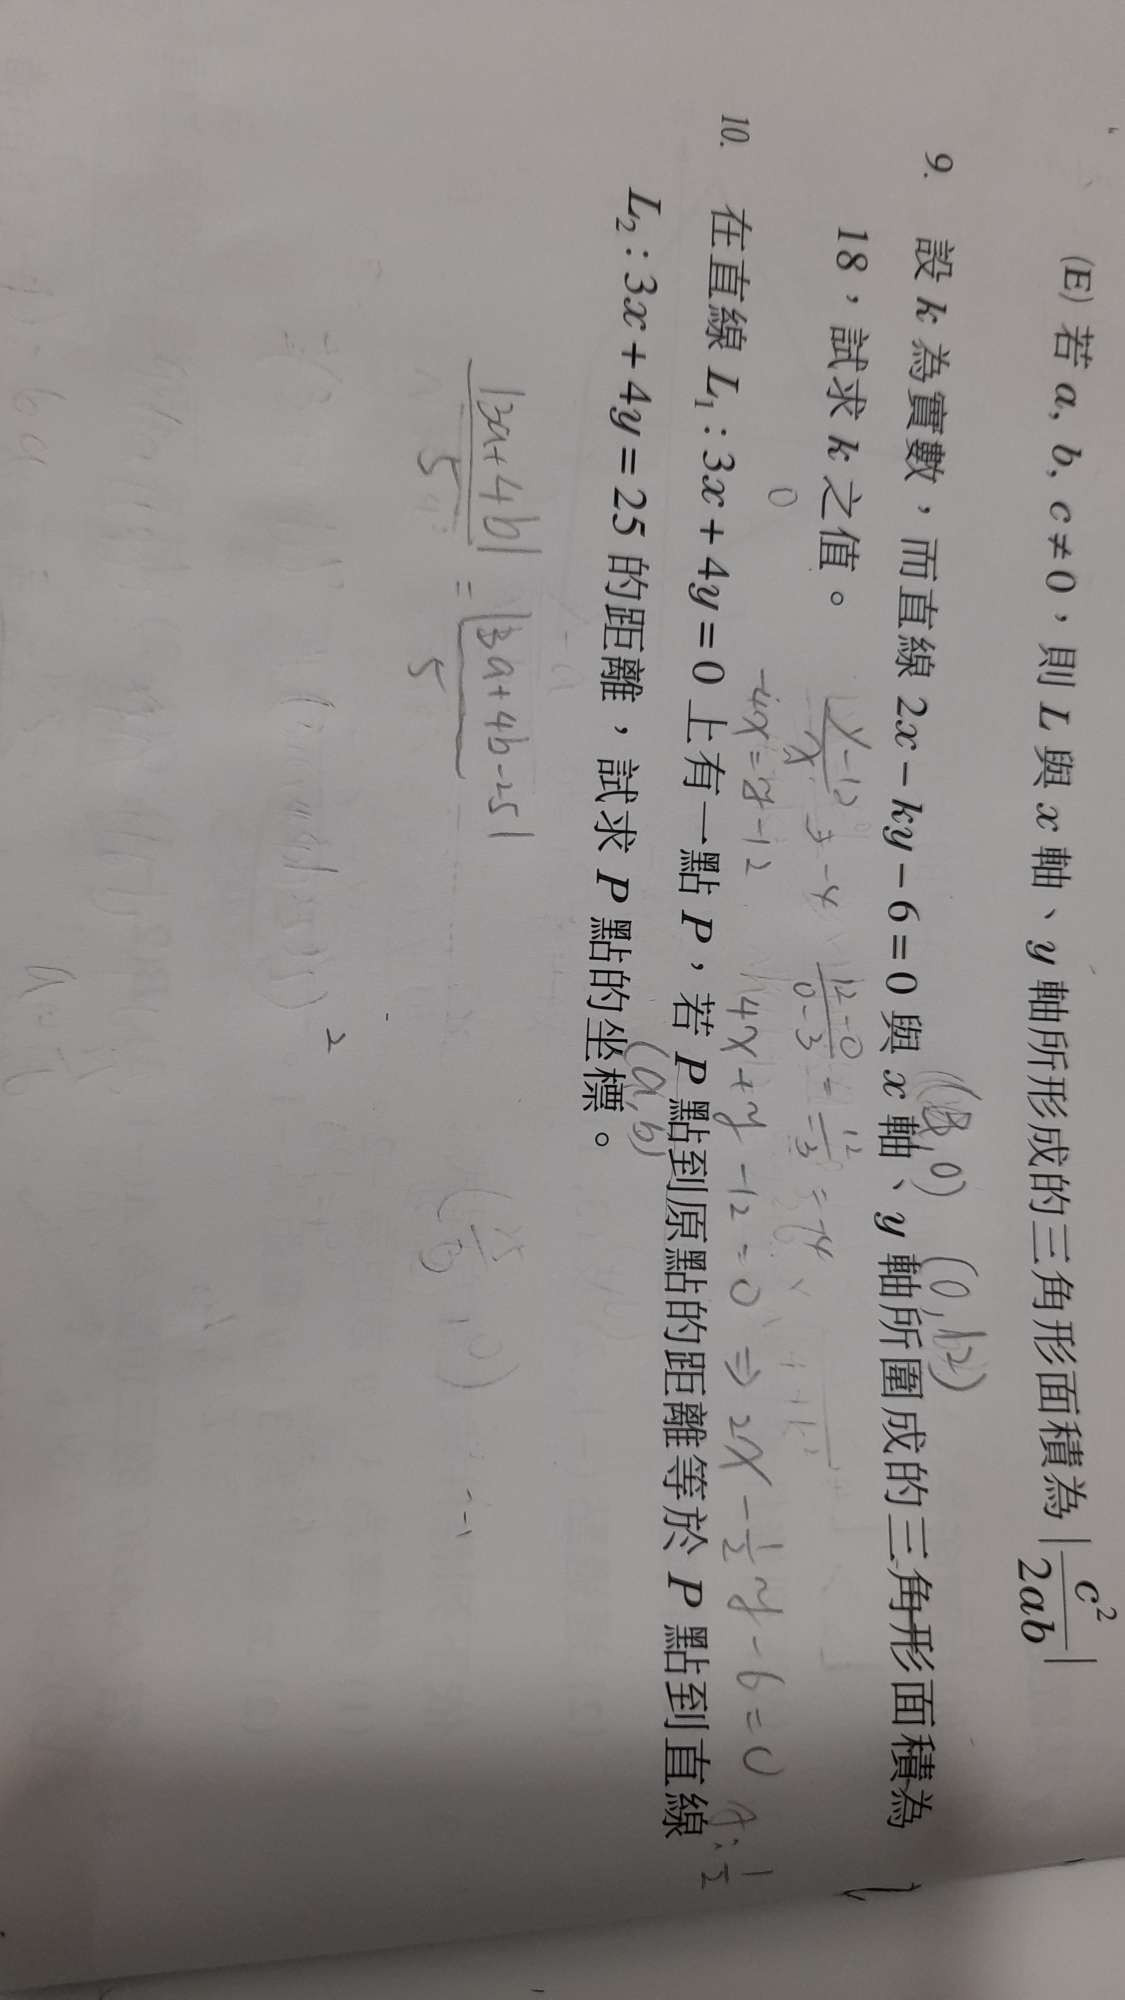 (E) 若 a, b, c≠0，則 L 與 x 軸、y 軸所形成的三角形面積為 |c²/2ab|
(0) (0, 12)
9. 設 k 為實數，而直線 2x－ky－6＝0 與 x 軸、y 軸所圍成的三角形面積為
18，試求 k 之值。
y-12/x = -4 12-0/0-3 = 12/-3 = -4
0 -4x=y-12 4x+y-12=0 ⇒ 2x-1/2y-6=0 1/2
10. 在直線 L₁：3x＋4y＝0 上有一點 P，若 P 點到原點的距離等於 P 點到直線
(a,b)
L₂：3x＋4y＝25 的距離，試求 P 點的坐標。
|3a+4b|/5 = |3a+4b-25|/5
2